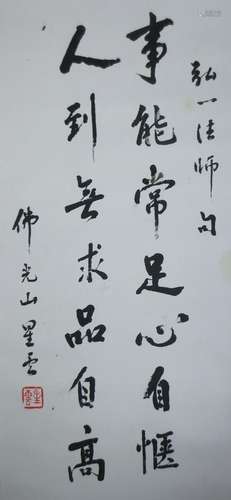 弘一法師句
事能常足心自愜
人到無求品自高
佛光山星雲